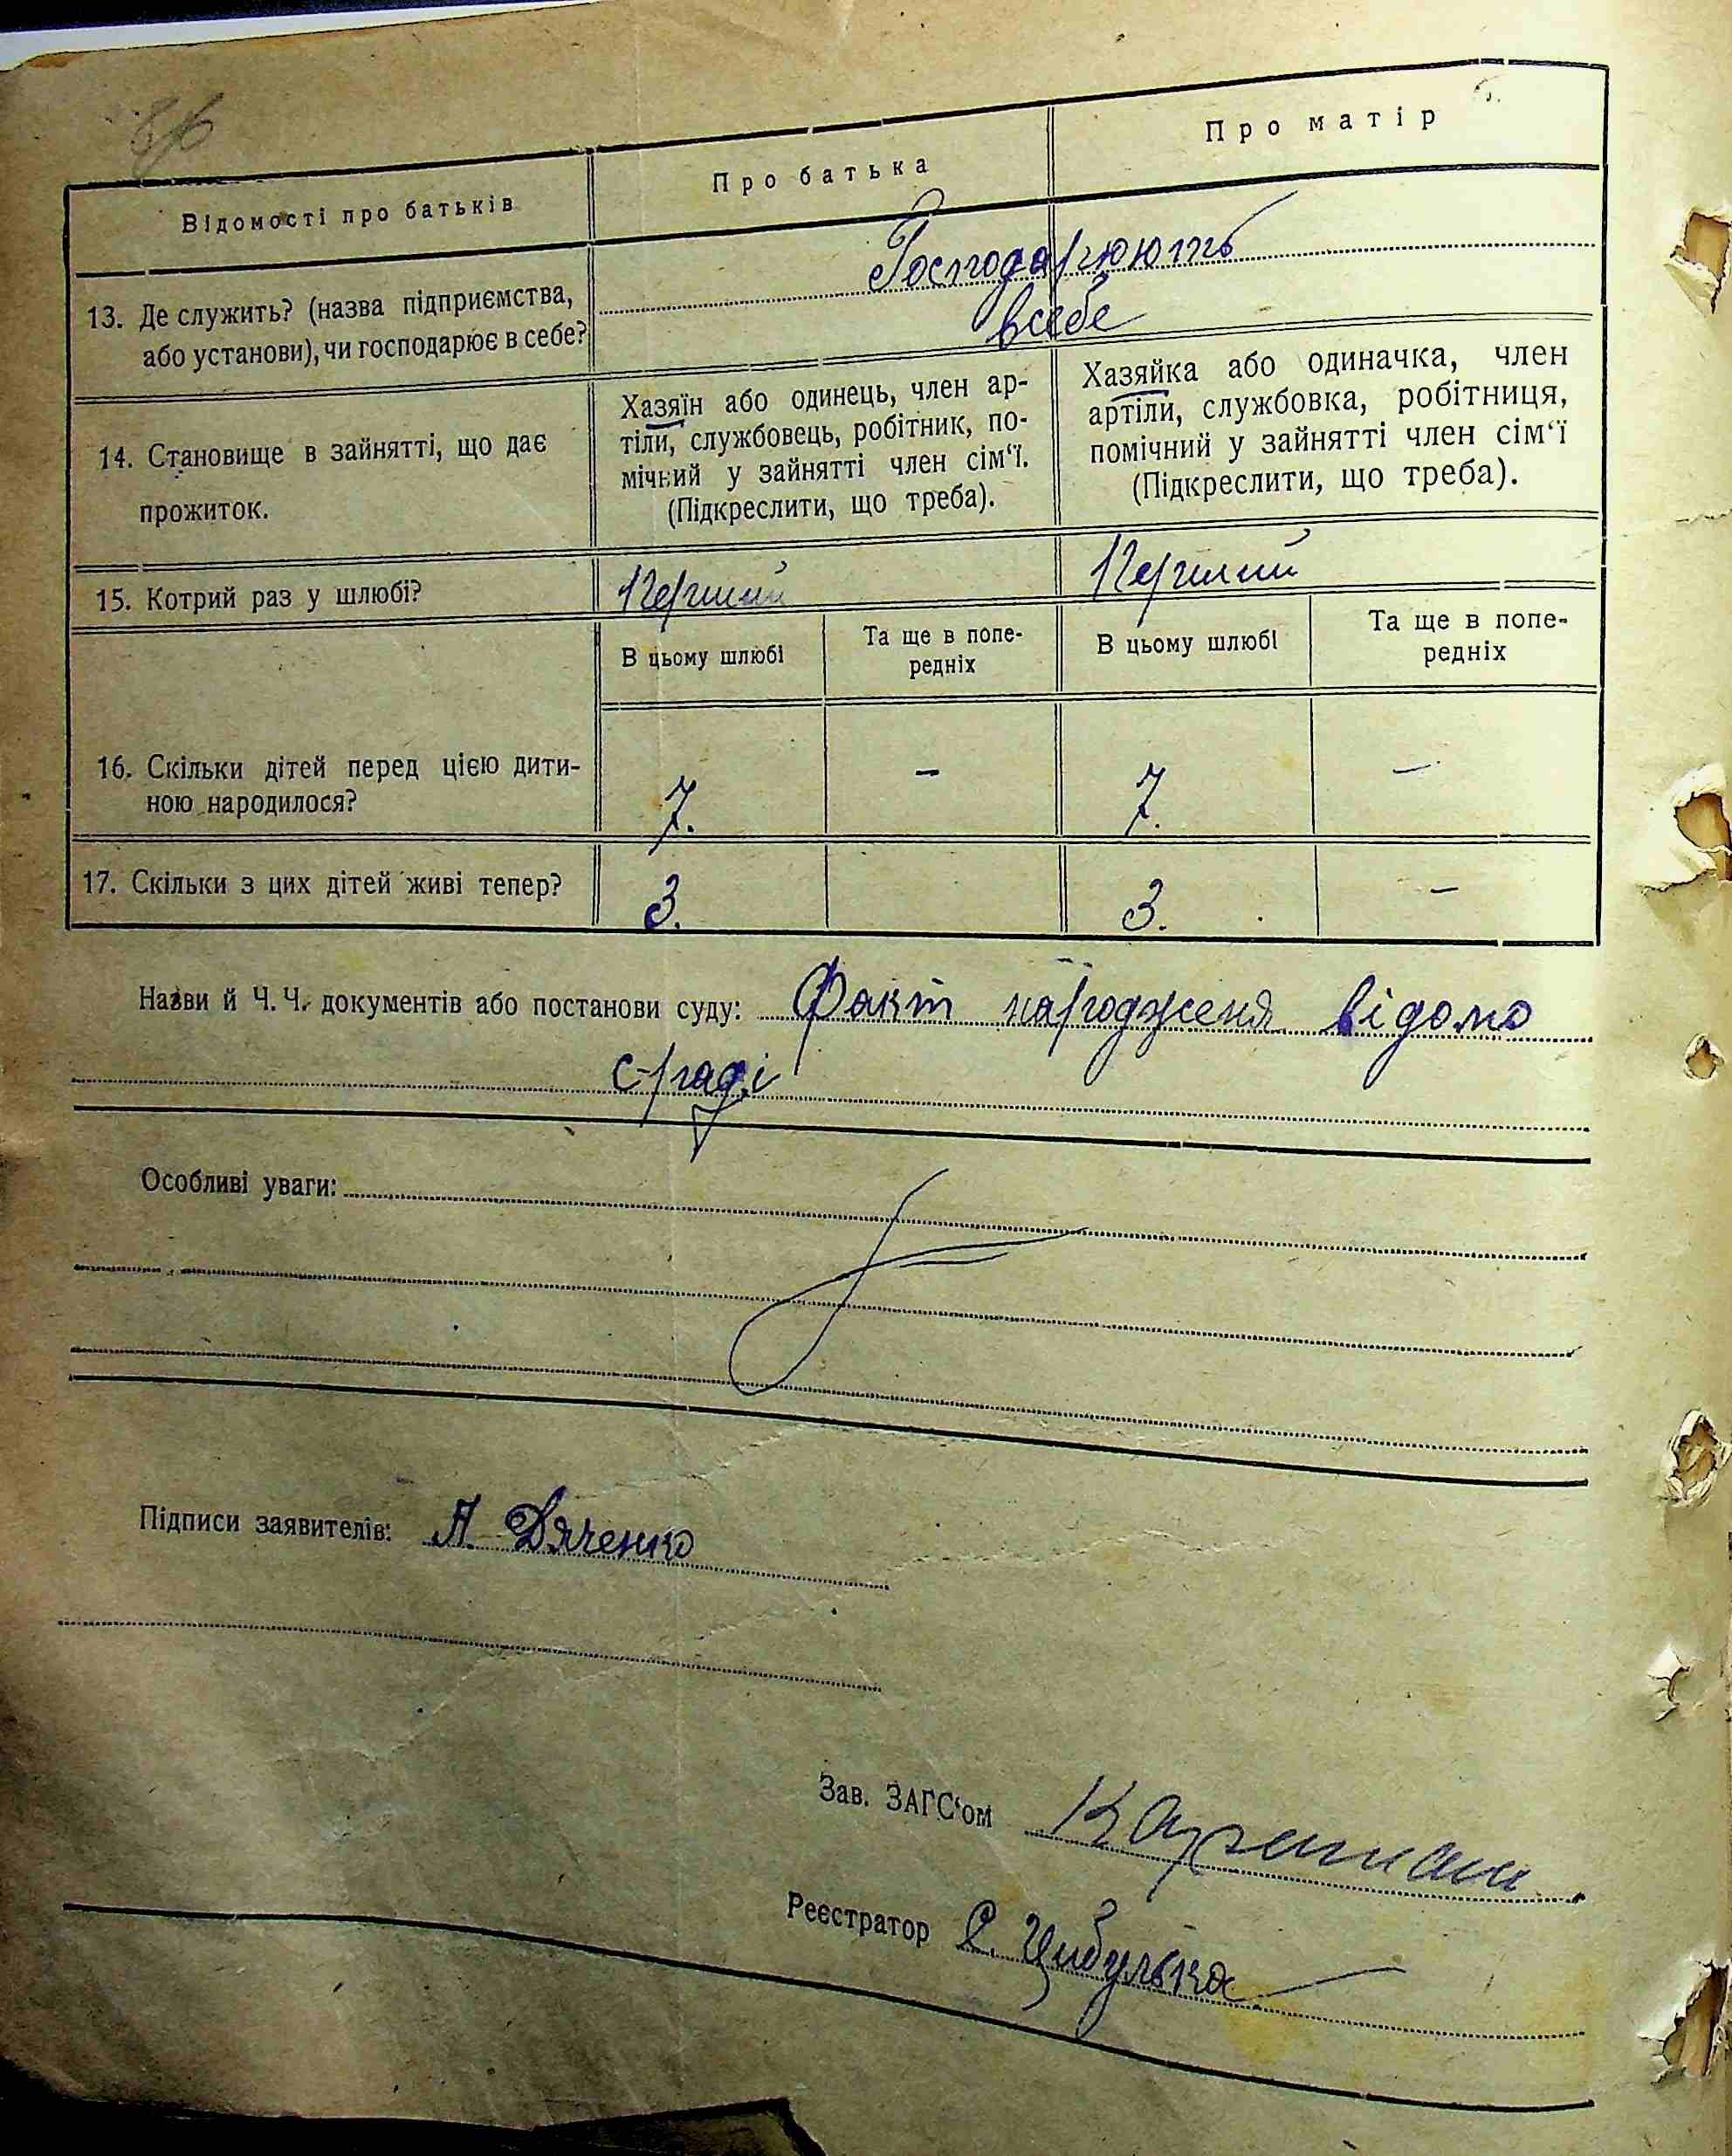 Відомості про батьків
Про батька
Про матір
13. Де служить? (назва підприємства,
або установи), чи господарює в себе?
Господарюють
всебе
14. Становище в зайнятті, що дає
прожиток.
Хазяїн або одинець, член ар-
тіли, службовець, робітник, по-
мічний у зайнятті член сім‘ї.
(Підкреслити, що треба).
Хазяйка або одиначка, член
артіли, службовка, робітниця,
помічний у зайнятті член сім‘ї
(Підкреслити, що треба).
15. Котрий раз у шлюбі?
Перший
Перший
В цьому шлюбі
Та ще в попе-
редніх
В цьому шлюбі
Та ще в попе-
редніх
16. Скільки дітей перед цією дити-
ною народилося?
7.
-
7.
-
17. Скільки з цих дітей живі тепер?
3.
3.
-
Назви й Ч. Ч. документів або постанови суду: Факт народженя відомо
с-раді
Особливі уваги:
Підписи заявителів: А. Дяченко
Зав. ЗАГС‘ом
Реєстратор Є. Цибулька